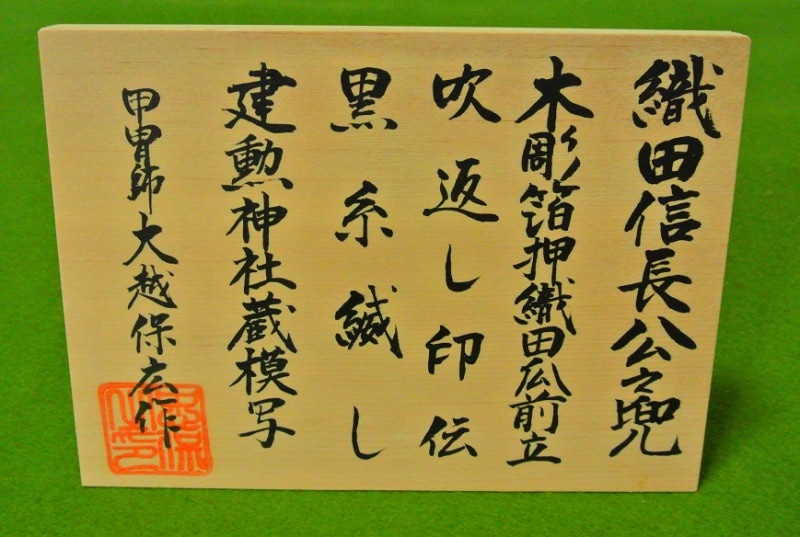 織田信長公之兜
木彫箔押織田瓜前立
吹返し印伝
黒糸縅し
建勲神社蔵模写
甲冑師大越保広作